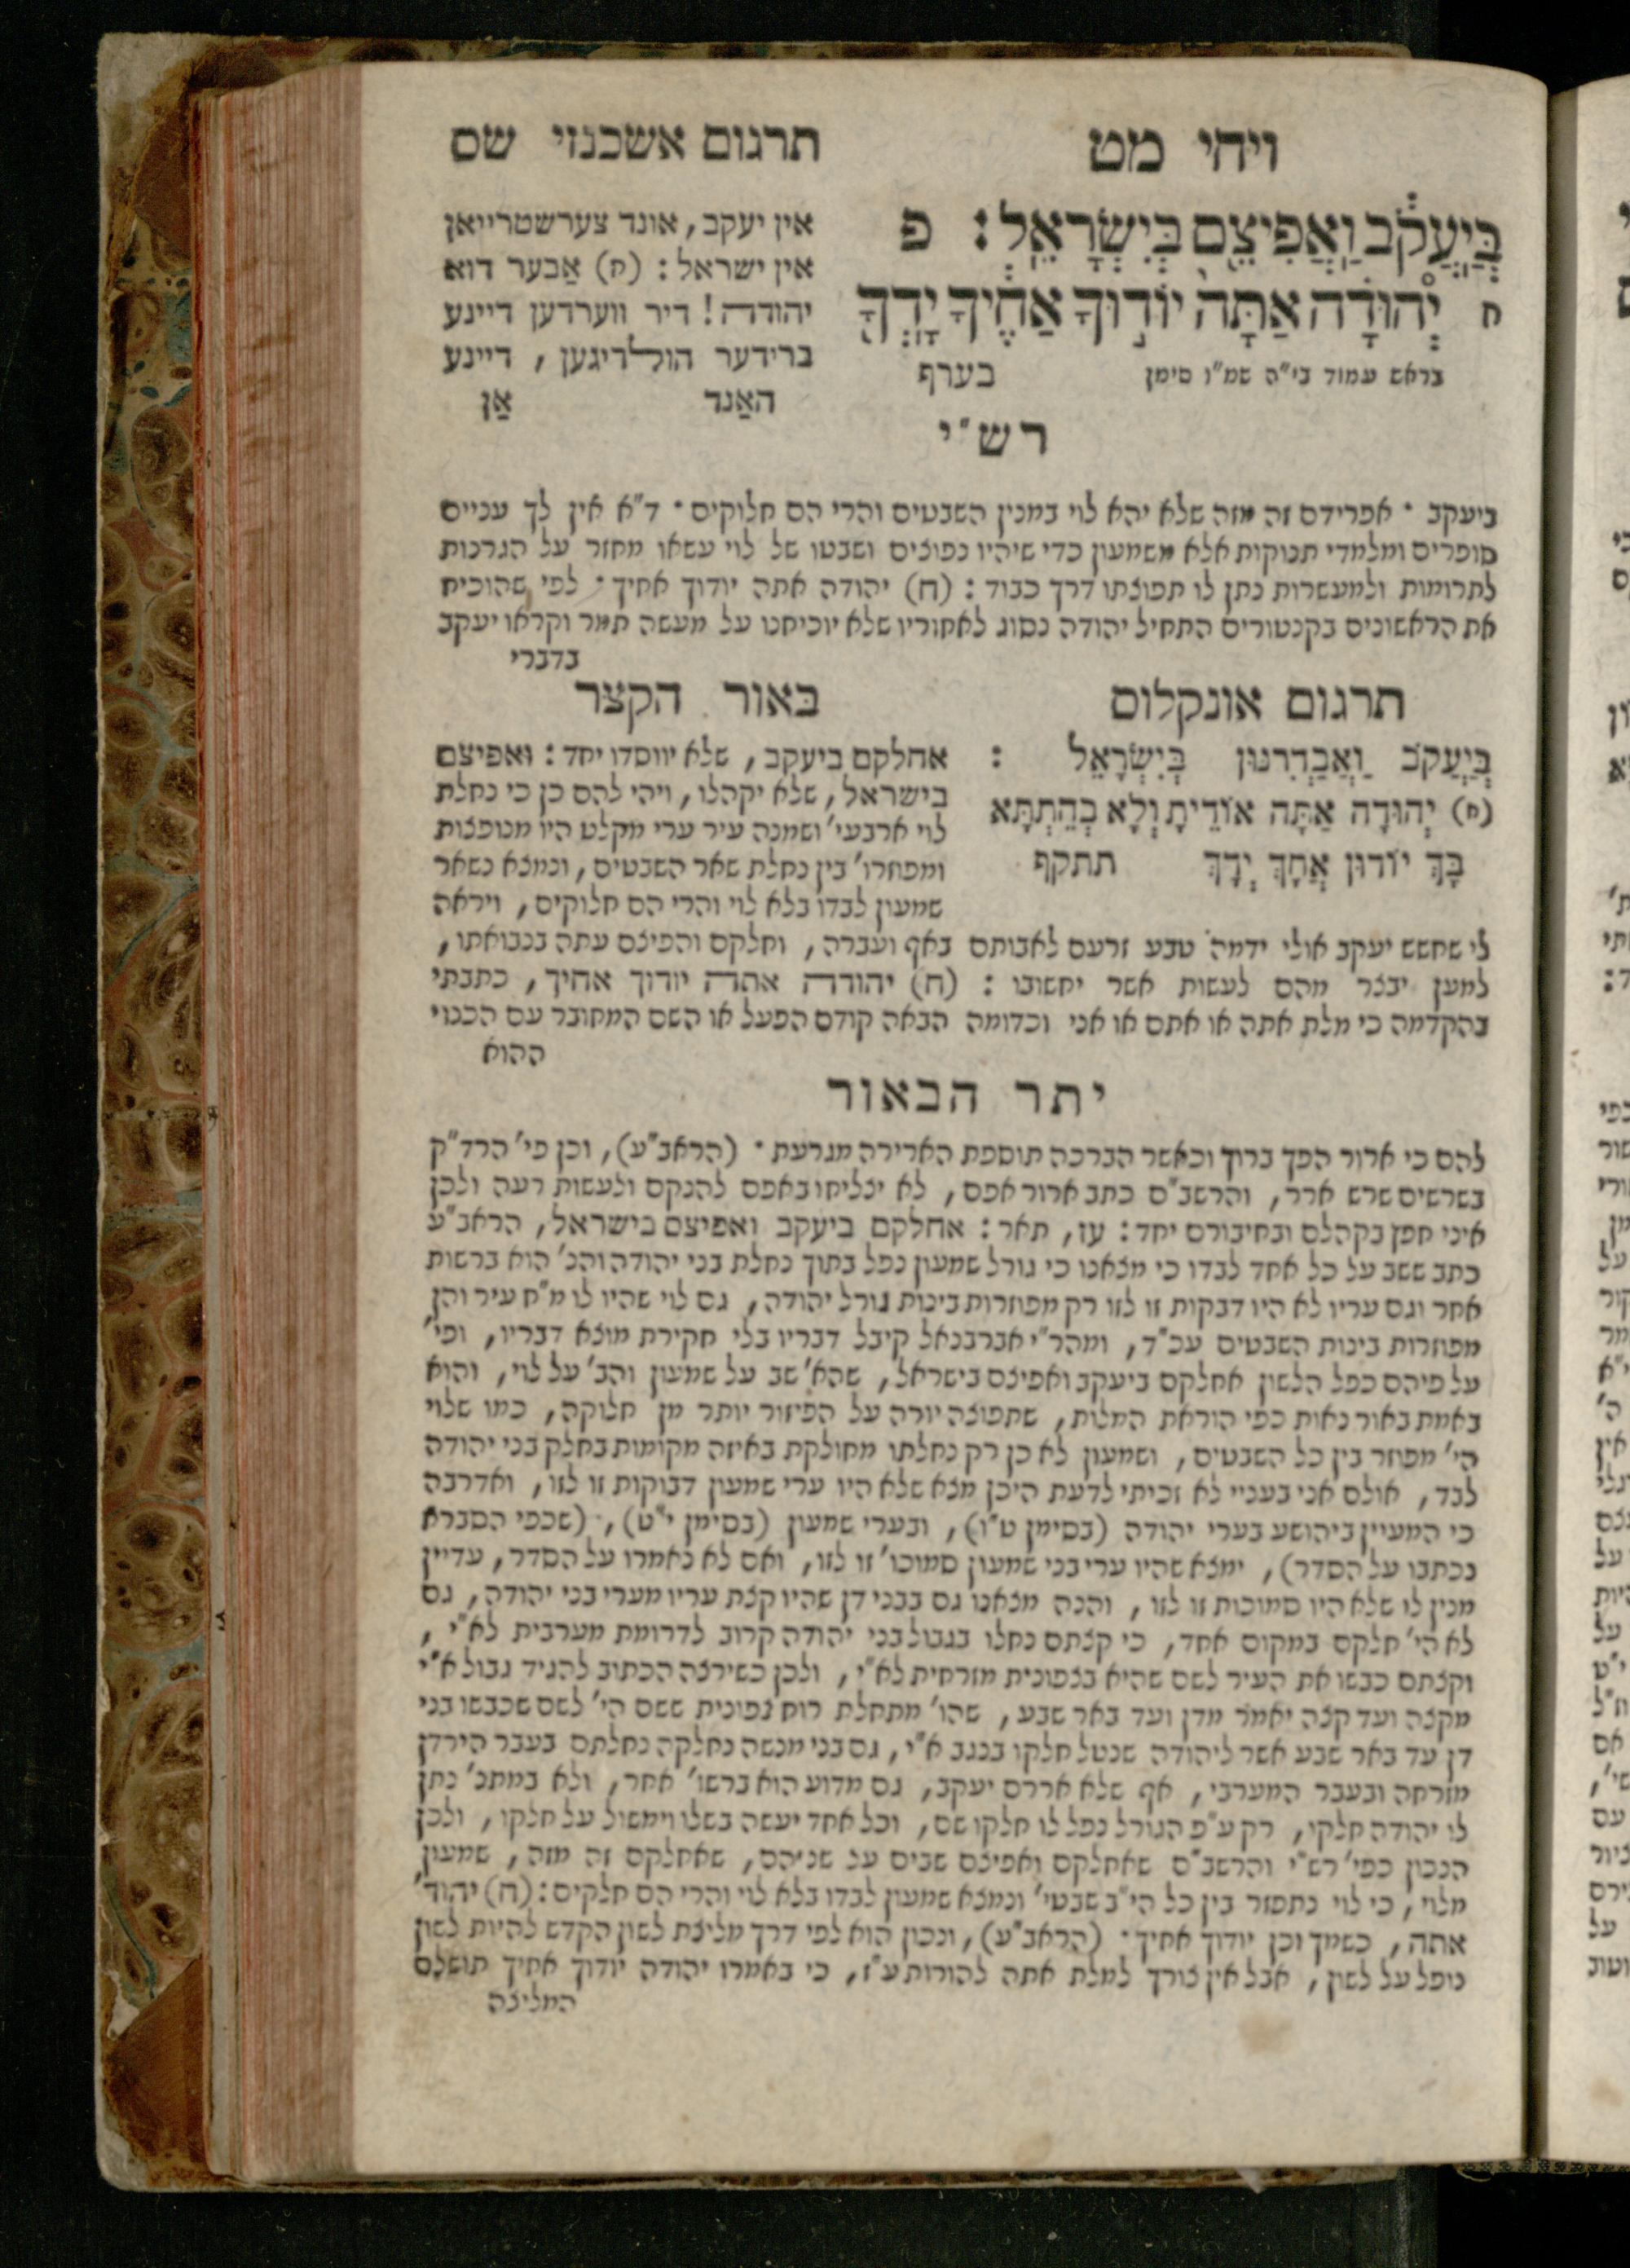 ויחי מט
תרגום אשכנזי שס
בְּיַעֲקֹב וַאֲפִיצֵם בְּיִשְׂרָאֵל׃ פ
ח יְהוּדָה אַתָּה יוֹדוּךָ אַחֶיךָ יָדְךָ
בראש עמוד בי״ה שמ״ו סימן בערף
אין יעקב, אונד צערשטרייאן
אין ישראל: (ח) אַבער דוא
יהודה! דיר ווערדען דיינע
ברידער הולדיגען, דיינע
האַנד אַן
רש״י
ביעקב · אפרידם זה מזה שלא יהא לוי במנין השבטים והרי הם חלוקים · ד״א אין לך עניים
סופרים ומלמדי תנוקות אלא משמעון כדי שיהיו נפוצים ושבטו של לוי עשאו מחזר על הגרנות
לתרומות ולמעשרות נתן לו תפוצתו דרך כבוד: (ח) יהודה אתה יודוך אחיך · לפי שהוכיח
את הראשונים בקנטורים התחיל יהודה נסוג לאחוריו שלא יוכיחנו על מעשה תמר וקראו יעקב
בדברי
תרגום אונקלוס
בְּיַעֲקֹב וַאֲבַדְרִנּוּן בְּיִשְׂרָאֵל :
(ח) יְהוּדָה אַתָּה אוֹדֵיתָ וְלָא בְהֵתְתָּא
בָּךְ יוֹדוּן אֲחָךְ יְדָךְ תתקף
באור הקצר
אחלקם ביעקב, שלא יווסדו יחד: ואפיצם
בישראל, שלא יקהלו, ויהי להם כן כי נחלת
לוי ארבעי׳ ושמנה עיר ערי מקלט היו מנופצות
ומפוזרו׳ בין נחלת שאר השבטים, ונמצא נשאר
שמעון לבדו בלא לוי והרי הם חלוקים, ויראה
לי שחשש יעקב אולי ידמה טבע זרעם לאבותם באף ועברה, וחלקם והפיצם עתה בנבואתו,
למען יבצר מהם לעשות אשר יחשובו: (ח) יהודה אתה יודוך אחיך, כתבתי
בהקדמה כי מלת אתה או אתם או אני וכדומה הבאה קודם הפעל או השם המחובר עם הכנוי
ההוא
יתר הבאור
להם כי ארור הפך ברוך וכאשר הברכה תוספת הארירה מגרעת · (הראב״ע), וכן פי׳ הרד״ק
בשרשים שרש ארר, והרשב״ם כתב ארור אפם, לא יצליחו באפם להנקם ולעשות רעה ולכן
איני חפץ בקהלם ובחיבורם יחד: עז, תאר: אחלקם ביעקב ואפיצם בישראל, הראב״ע
כתב ששב על כל אחד לבדו כי מצאנו כי גורל שמעון נפל בתוך נחלת בני יהודה והנ׳ הוא ברשות
אחר וגם עריו לא היו דבקות זו לזו רק מפוזרות בינות גורל יהודה, גם לוי שהיו לו מ״ח עיר והן
מפוזרות בינות השבטים עכ״ד, ומהר״י אברבנאל קיבל דבריו בלי חקירת מוצא דבריו, ופי׳
על פיהם כפל הלשון אחלקם ביעקב ואפיצם בישראל, שהא׳ שב על שמעון והב׳ על לוי, והוא
באמת באור נאות כפי הוראת המלות, שתפוצה יורה על הפיזור יותר מן חלוקה, כמו שלוי
הי׳ מפוזר בין כל השבטים, ושמעון לא כן רק נחלתו מחולקת באיזה מקומות בחלק בני יהודה
לבד, אולם אני בעניי לא זכיתי לדעת היכן מצא שלא היו ערי שמעון דבוקות זו לזו, ואדרבה
כי המעיין ביהושע בערי יהודה (בסימן ט״ו), ובערי שמעון (בסימן י״ט), (שכפי הסברא
נכתבו על הסדר), ימצא שהיו ערי בני שמעון סמוכו׳ זו לזו, ואם לא נאמרו על הסדר, עדיין
מנין לו שלא היו סמוכות זו לזו, והנה מצאנו גם בבני דן שהיו קצת עריו מערי בני יהודה, גם
לא הי׳ חלקם במקום אחד, כי קצתם נחלו בגבול בני יהודה קרוב לדרומת מערבית לא״י,
וקצתם כבשו את העיר לשם שהיא בצפונית מזרחית לא״י, ולכן כשירצה הכתוב להגיד גבול א״י
מקצה ועד קצה יאמר מדן ועד באר שבע, שהו׳ מתחלת רוח צפונית ששם הי׳ לשם שכבשו בני
דן עד באר שבע אשר ליהודה שנטל חלקו בנגב א״י, גם בני מנשה נחלקה נחלתם בעבר הירדן
מזרחה ובעבר המערבי, אף שלא אררם יעקב, גם מדוע הוא ברשו׳ אחר, ולא במתנ׳ נתן
לו יהודה חלקו, רק ע״פ הגורל נפל לו חלקו שם, וכל אחד יעשה בשלו וימשול על חלקו, ולכן
הנכון כפי׳ רש״י והרשב״ם שאחלקם ואפיצם שבים על שניהם, שאחלקם זה מזה, שמעון
מלוי, כי לוי נתפזר בין כל הי״ב שבטי׳ ונמצא שמעון לבדו בלא לוי והרי הם חלקים: (ח) יהוד׳
אתה, כשמך וכן יודוך אחיך · (הראב״ע), ונכון הוא לפי דרך מליצת לשון הקדש להיות לשון
נופל על לשון, אבל אין צורך למלת אתה להורות ע״ז, כי באמרו יהודה יודוך אחיך תושלם
המליצה